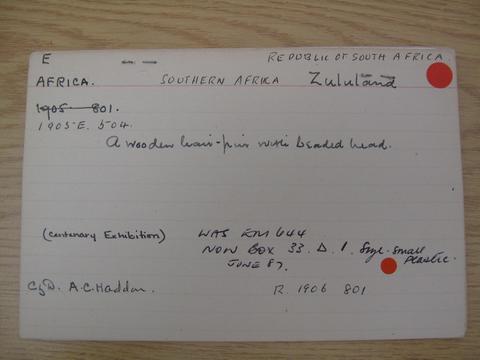 E REPUBLIC OF SOUTH AFRICA.
AFRICA. SOUTHERN AFRIKA Zululand
1905 801.
1905 E. 504.
A wooden hair-pin with beaded head.
(Centenary Exhibition) WAS EM 644
NOW BOX 33. D. 1. Size-small
JUNE 87. Plastic.
CgD. A.C. Haddon. R. 1906 801